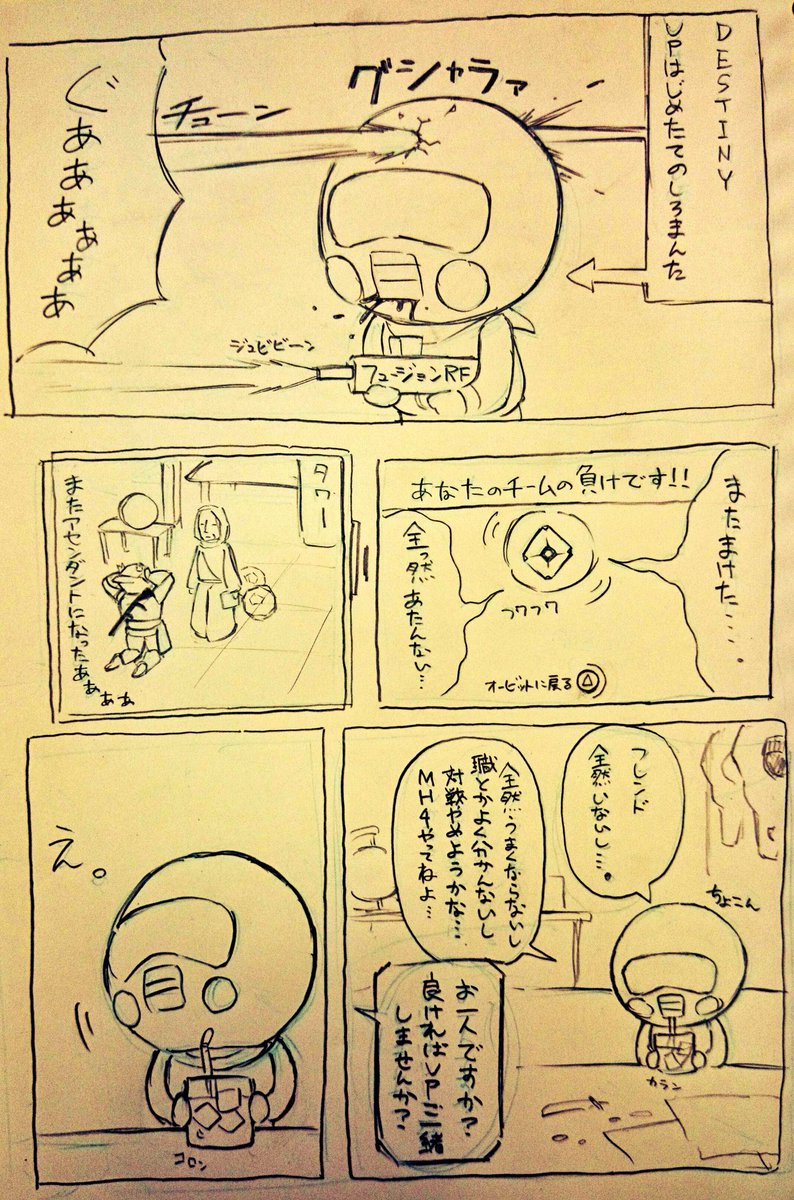 DESTINY
VPはじめたてのしろまんた
グシャラァ
チューン
ぐぁぁぁぁぁぁ
ジュビビーン
フュージョンRF
またまけた…。
あなたのチームの負けです!!
フワフワ
全っ然あたんない…
オービットに戻る△
タワー
またアセンダントになったぁぁぁぁ
フレンド
全然いないし…。
ちょこん
カラン
全然うまくならないし
職とかよく分かんないし
対戦やめようかな…
MH4やってねよ…
お一人ですか?
良ければVPご一緒
しませんか?
え。
コロン